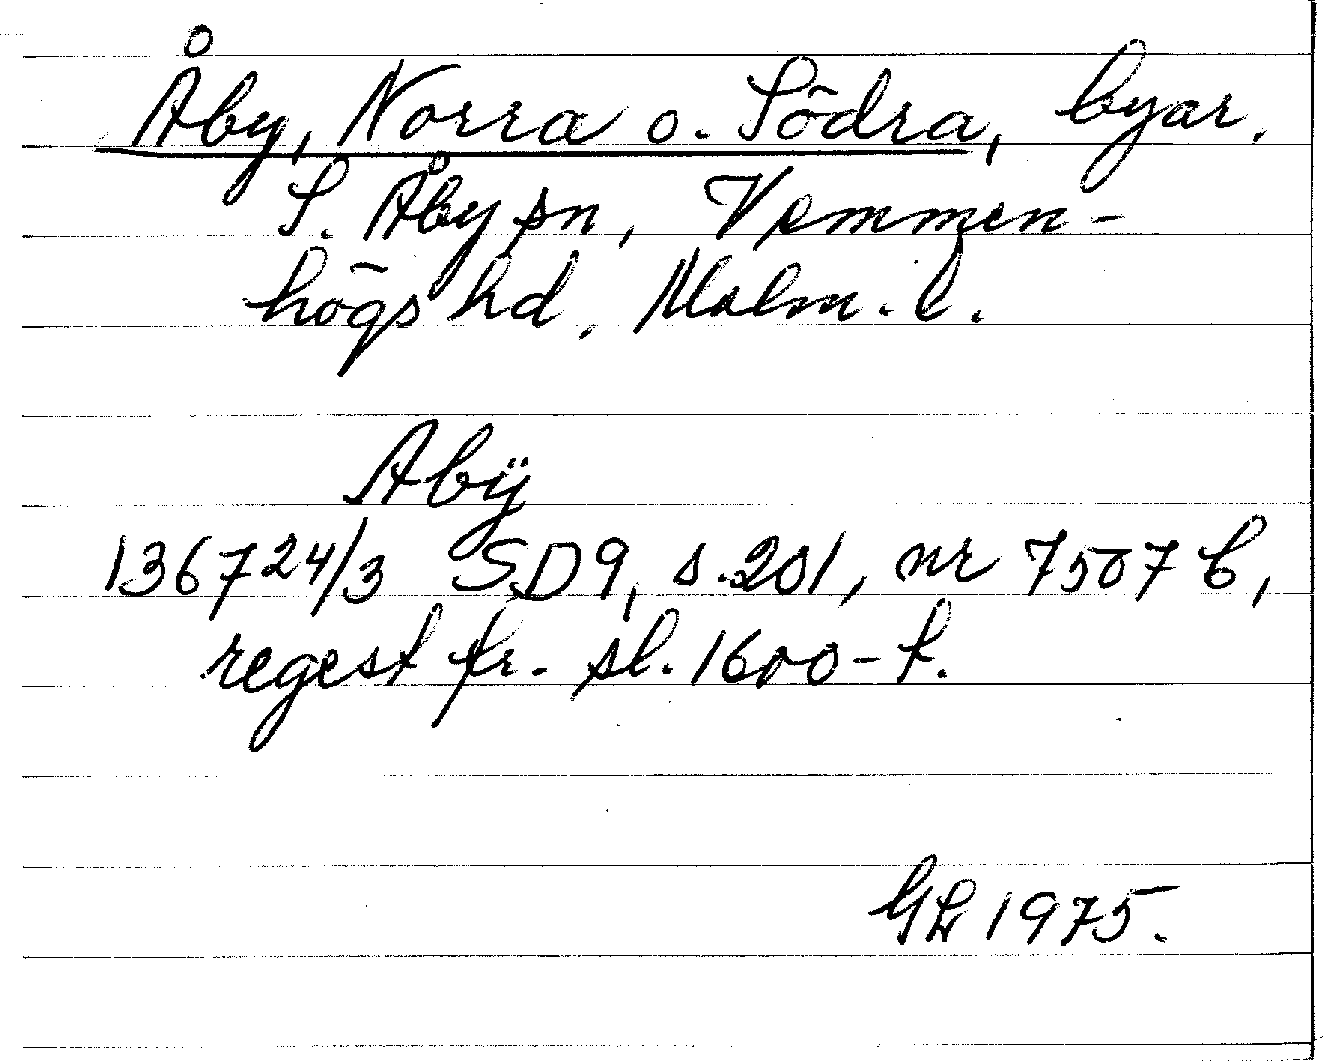 Åby, Norra o. Södra, byar.
S. Åby sn, Vemmen-
högs hd, Malm. l.
Abÿ
1367 24/3 SD9, s.201, nr 7507 b,
regest fr. sl. 1600-t.
GL 1975.